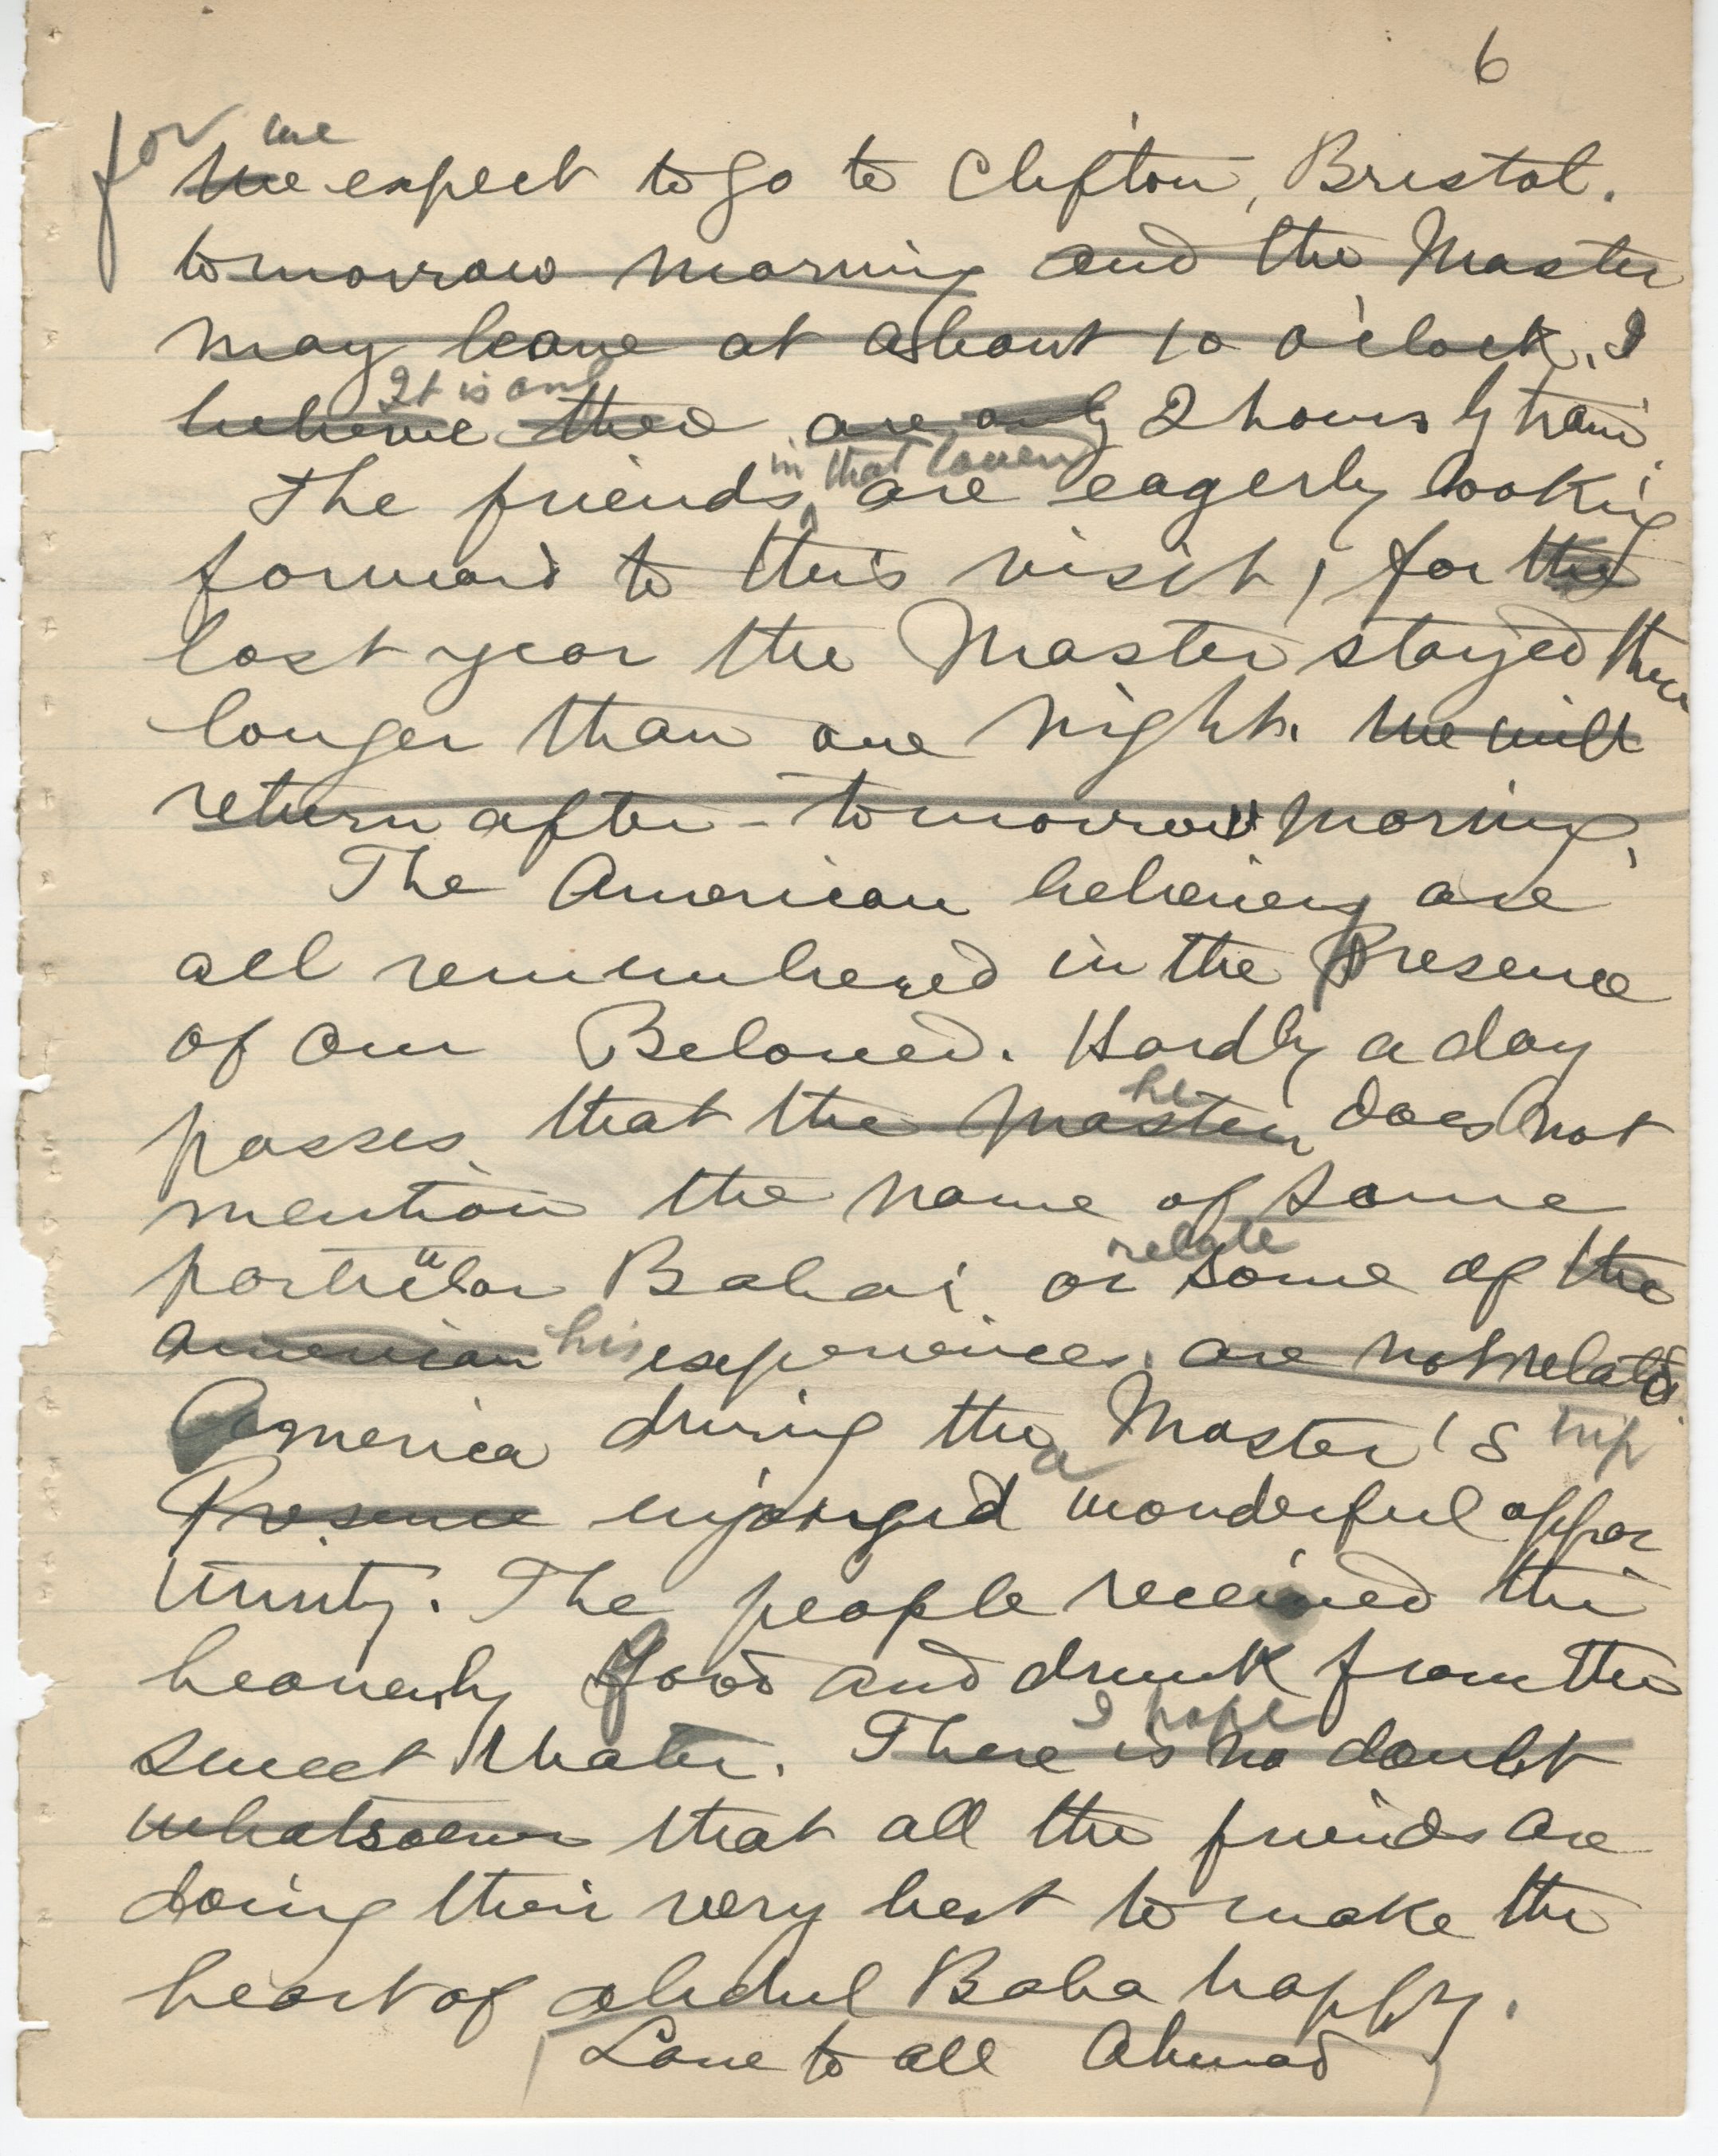 6
for we
We expect to go to Clifton, Bristol.
tomorrow morning and the Master
may leave at about 10 o'clock. I
It is only
believe there are only 2 hours by train.
in that
The friends are eagerly looking
forward to this visit, for the
last year the Master stayed there
longer than one night. We will
return after-tomorrow morning.
The American believers are
all remembered in the Presence
of our Beloved. Hardly a day
he
passes that the Master does not
mention the name of some
relate
particular Bahai or some of the
American his experiences. are not related.
America during the Master's trip
a
Presence enjoyed wonderful oppor
tunity. The people received the
heavenly food and drunk from the
I hope
sweet Water. There is no doubt
whatsoever that all the friends are
doing their very best to make the
heart of Abdul Baha happy.
Love to all Ahmad